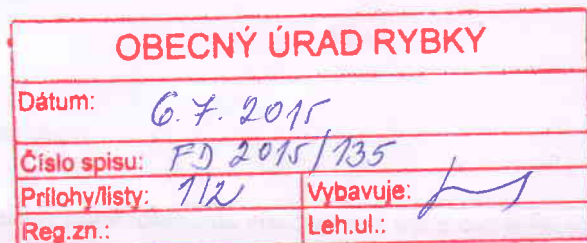 OBECNÝ ÚRAD RYBKY
Dátum: 6.7.2015
Číslo spisu: FD 2015/135
Prílohy/listy: 1/2 Vybavuje:
Reg.zn.: Leh.ul.: